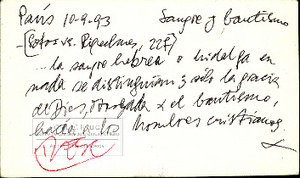 París 10-9-93 Sangre y bautismo
... la sangre hebrea o hidalga en
nada se distinguían; sólo la gracia
de Dios, otorgada x el bautismo,
hacía a los hombres cristianos.